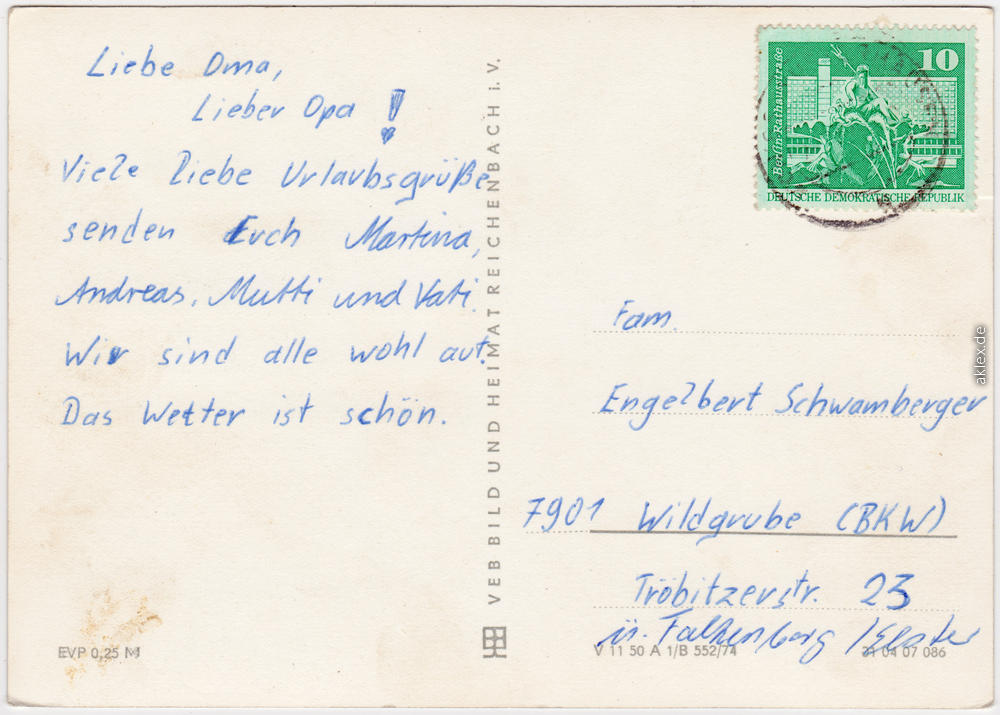 Liebe Oma,
Lieber Opa !
Viele liebe Urlaubsgrüße
senden Euch Martina,
Andreas, Mutti und Vati.
Wir sind alle wohl auf.
Das Wetter ist schön.
EVP 0,25 M
VEB BILD UND HEIMAT REICHENBACH i. V.
10
Berlin-Rathausstraße
DEUTSCHE DEMOKRATISCHE REPUBLIK
Fam.
Engelbert Schwamberger
7901 Wildgrube (BKW)
Tröbitzerstr. 23
ü. Falkenberg /Elster
V 11 50 A 1/B 552/74
31 04 07 086
aklex.de